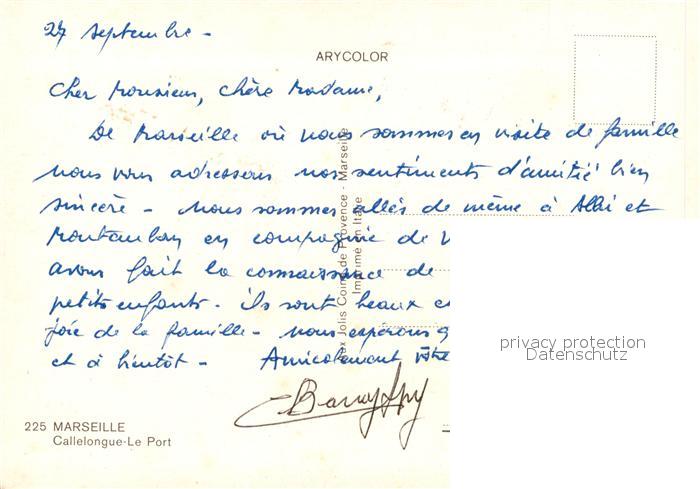 27 septembre -
ARYCOLOR
Cher Monsieur, chère Madame,
De Marseille où nous sommes en visite de famille
nous vous adressons nos sentiments d'amitié bien
sincère - nous sommes allés de même à Albi et
Montauban en compagnie de
avons fait la connaissance de
petits enfants - ils sont beaux et
joie de la famille - nous espérons
et à bientôt - Amicalement vôtre
Aux Jolis Coins de Provence - Marseille
Imprimé en Italie
privacy protection
Datenschutz
225 MARSEILLE
Callelongue-Le Port